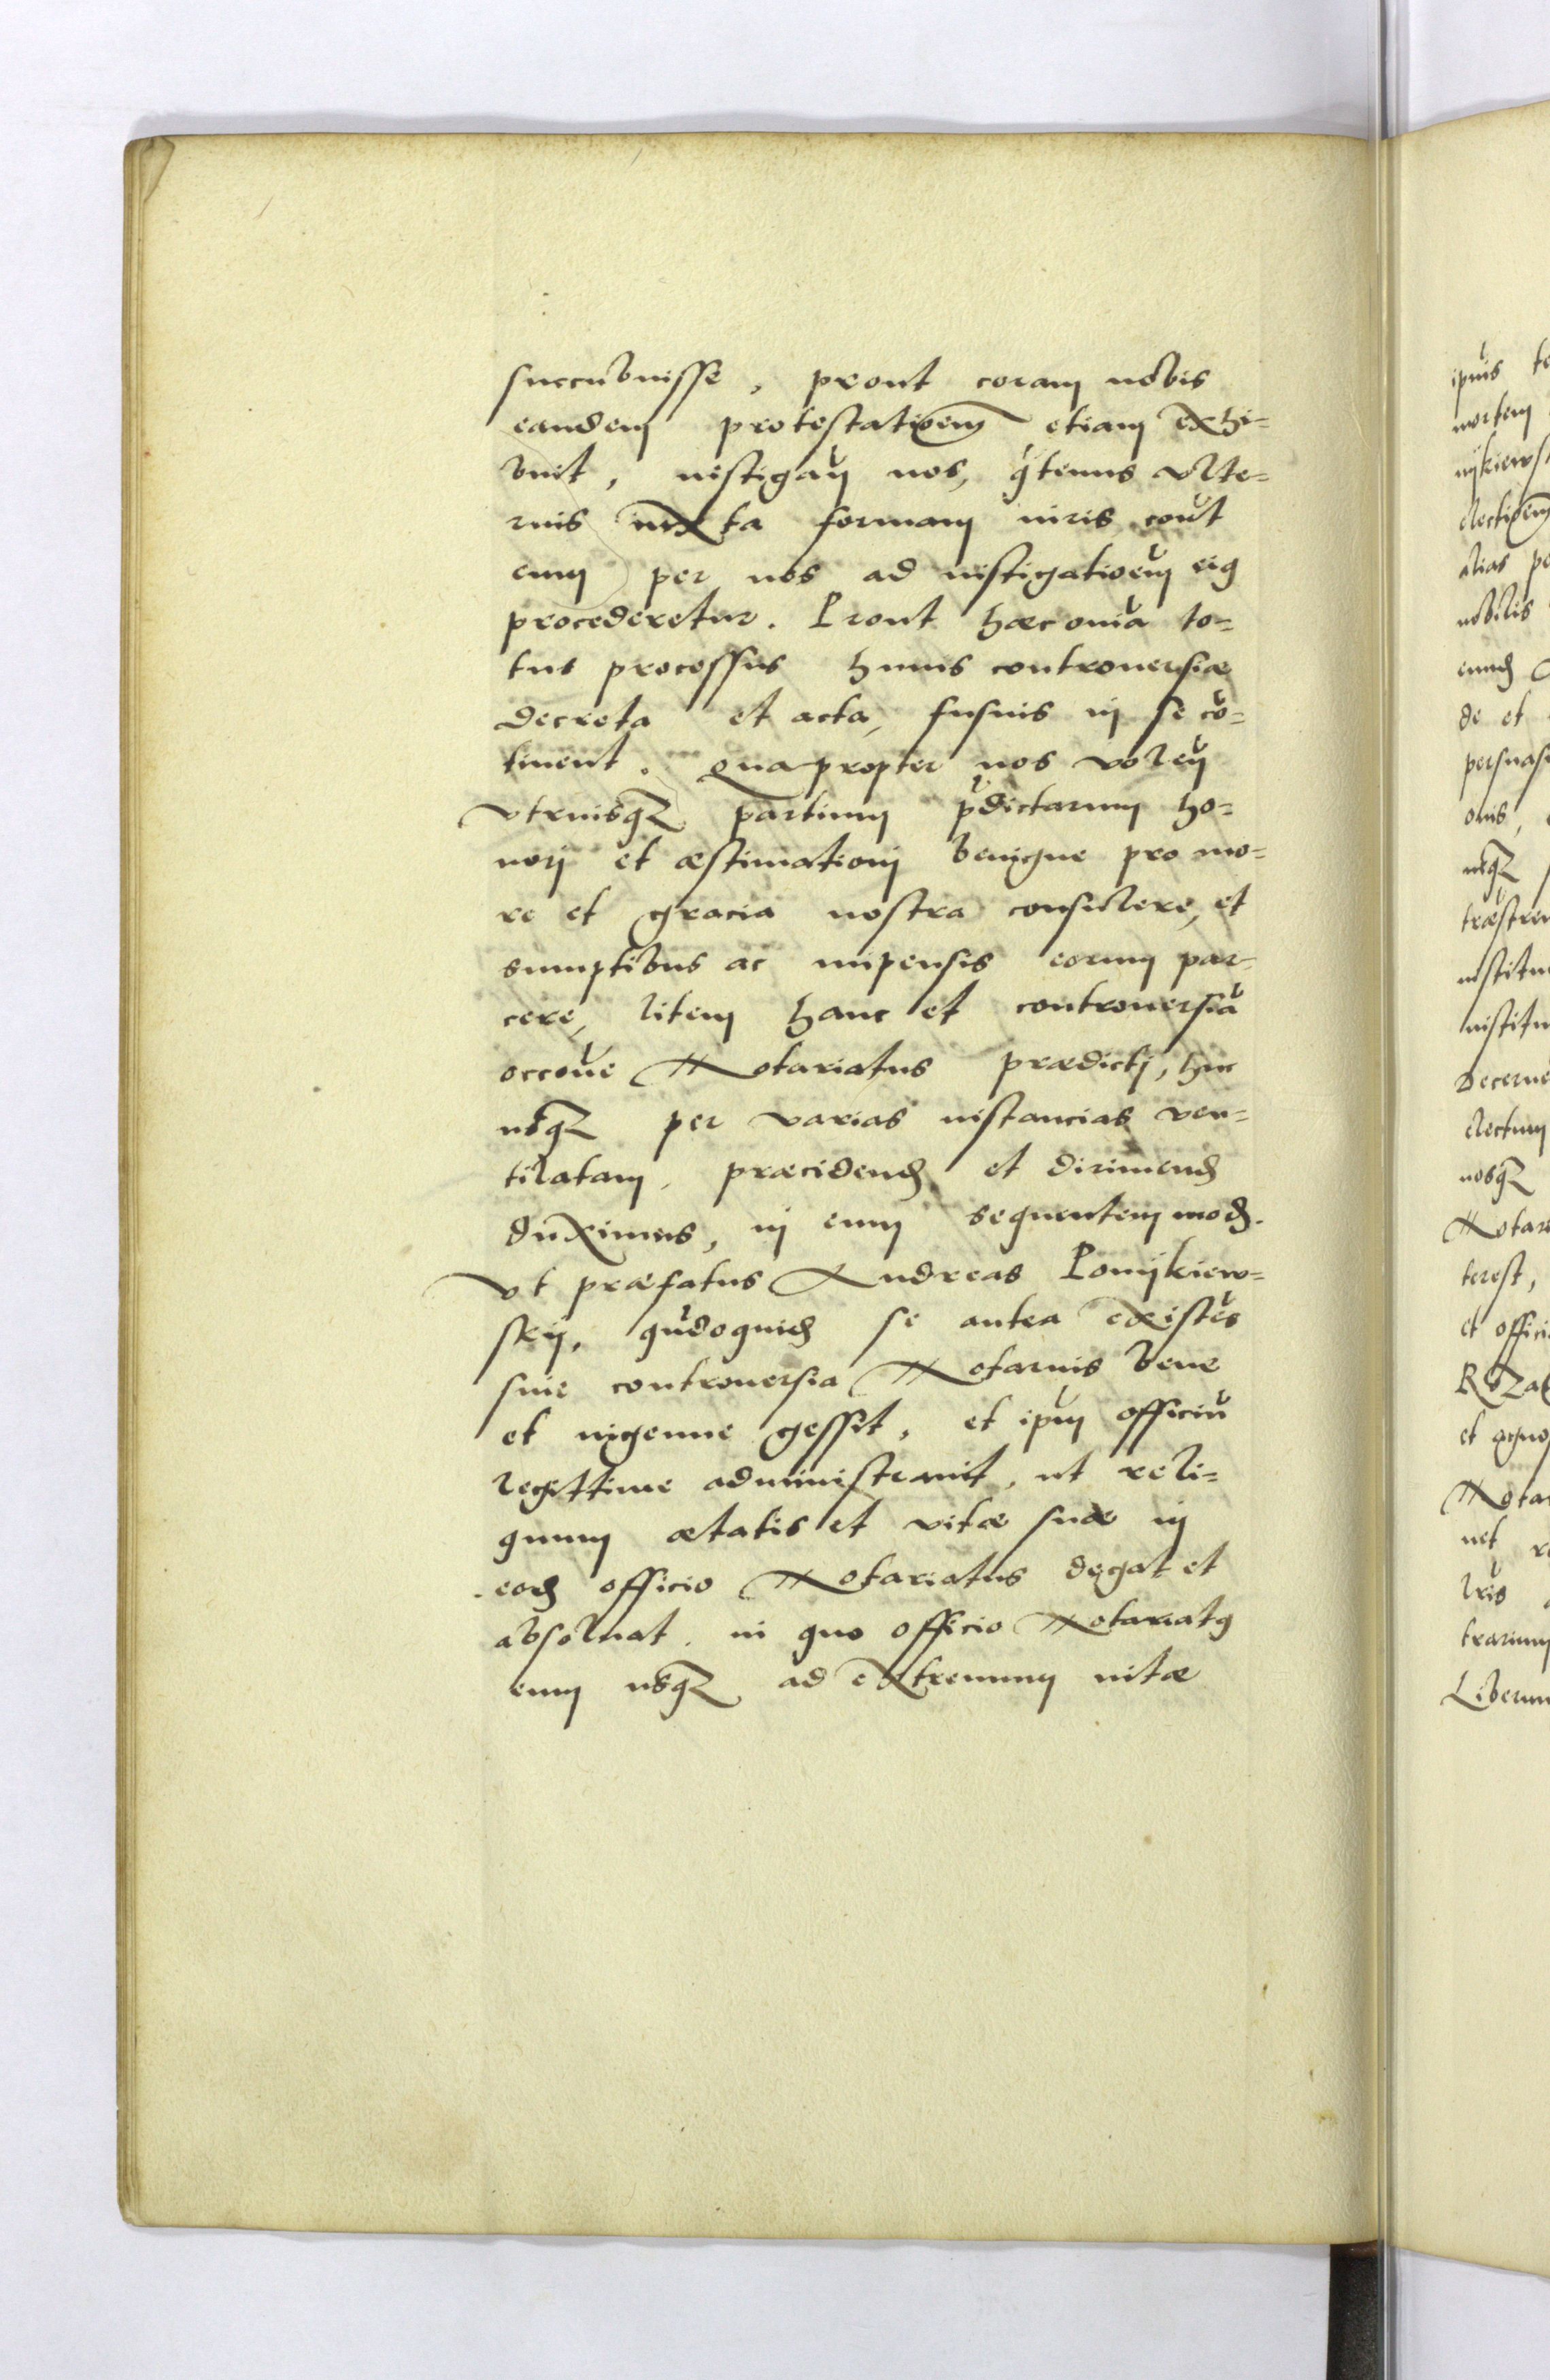 succubuisse, prout coram nobis
eandem protestatioem etiam exhi=
buit, instigan nos, qtenus vlte=
rius iuxta formam iuris cont
eum per nos ad instigatioem eig
procederetur. Prout hæc omia to=
tus processus huius controuersiæ
decreta et acta, fusius in se co=
tinent. Quapropter nos volen
vtriusq partium pdictarum ho=
nori et æstimationi benigne pro mo=
re et gracia nostra consulere, et
sumptibus ac impensis eorum par=
cere, litem hanc et controuersia
occoue Notariatus prædicti, huc
usq per varias instancias ven=
tilatam, præcidend et dirimend
duximus, in eum sequentem mod.
Vt præfatus Andreas Lomykiew=
skij, qudoquid se antea existes
siue controuersia Notarius bene
et ingenue gessit, et ipm officiu
legittime administrauit, ut reli=
quum ætatis et vitæ suæ in
eod officio Notariatus degat et
absoluat. in quo officio Notariatg
eum usq ad extremum uitæ
ipius te
mortem
nykiews
electioem
alias pe
nobilis
eund
de et
persuasi
onis,
usq
træstre
institu
institu
decerne
electum
nosq
Notar
terest,
et offici
Roza
et
Nota
net
lris
trarium
Liberum